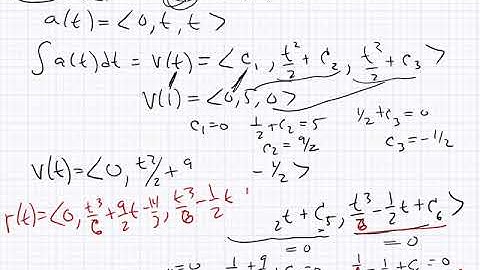 a(t) = <0, t, t>
∫ a(t) dt = v(t) = <c₁, t²/2 + c₂, t²/2 + c₃>
v(1) = <0, 5, 0>
c₁=0 1/2 + c₂ = 5 1/2 + c₃ = 0
c₂ = 9/2 c₃ = -1/2
v(t) = <0, t²/2 + 9 - 1/2>
r(t) = <0, t³/6 + 9/2 t - 14/3, t³/6 - 1/2 t
₂t + C₅, t³/6 - 1/2 t + C₆>
= 0 = 0